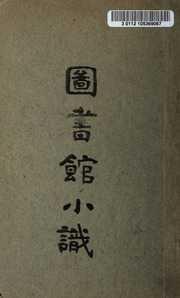 圖書館小識
3 0112 105369067